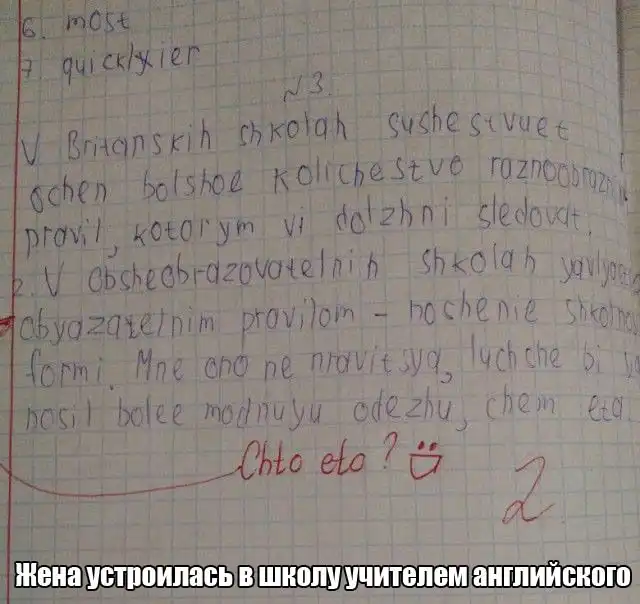 6. most
7. quicklyier
N3.
V Britanskih shkolah sushestvuet
ochen bolshoe kolichestvo raznoobraznih
pravil, kotorym vi dolzhni sledovat.
2. V obsheobrazovatelnih shkolah yavlyaetsya
obyazatelnim pravilom - noshenie shkolnoy
formi. Mne ono ne nravitsya, luchshe bi ya
nosil bolee modnuyu odezhu, chem eta.
Chto eto?
2
Жена устроилась в школу учителем английского